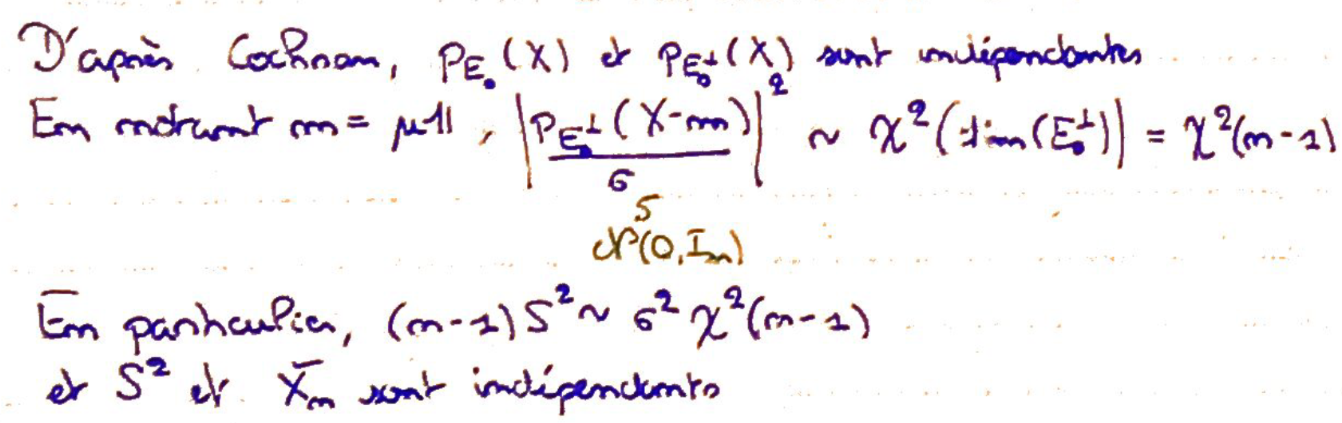 D'après Cochran, P_{E_0}(X) et P_{E_0^⊥}(X) sont indépendantes
En notant m = μ𝟙, |P_{E_0^⊥}(X-m)/σ|² ~ χ²(dim(E_0^⊥)) = χ²(n-1)
~
N(0,I_n)
En particulier, (n-1)S² ~ σ² χ²(n-1)
et S² et X̄_n sont indépendants